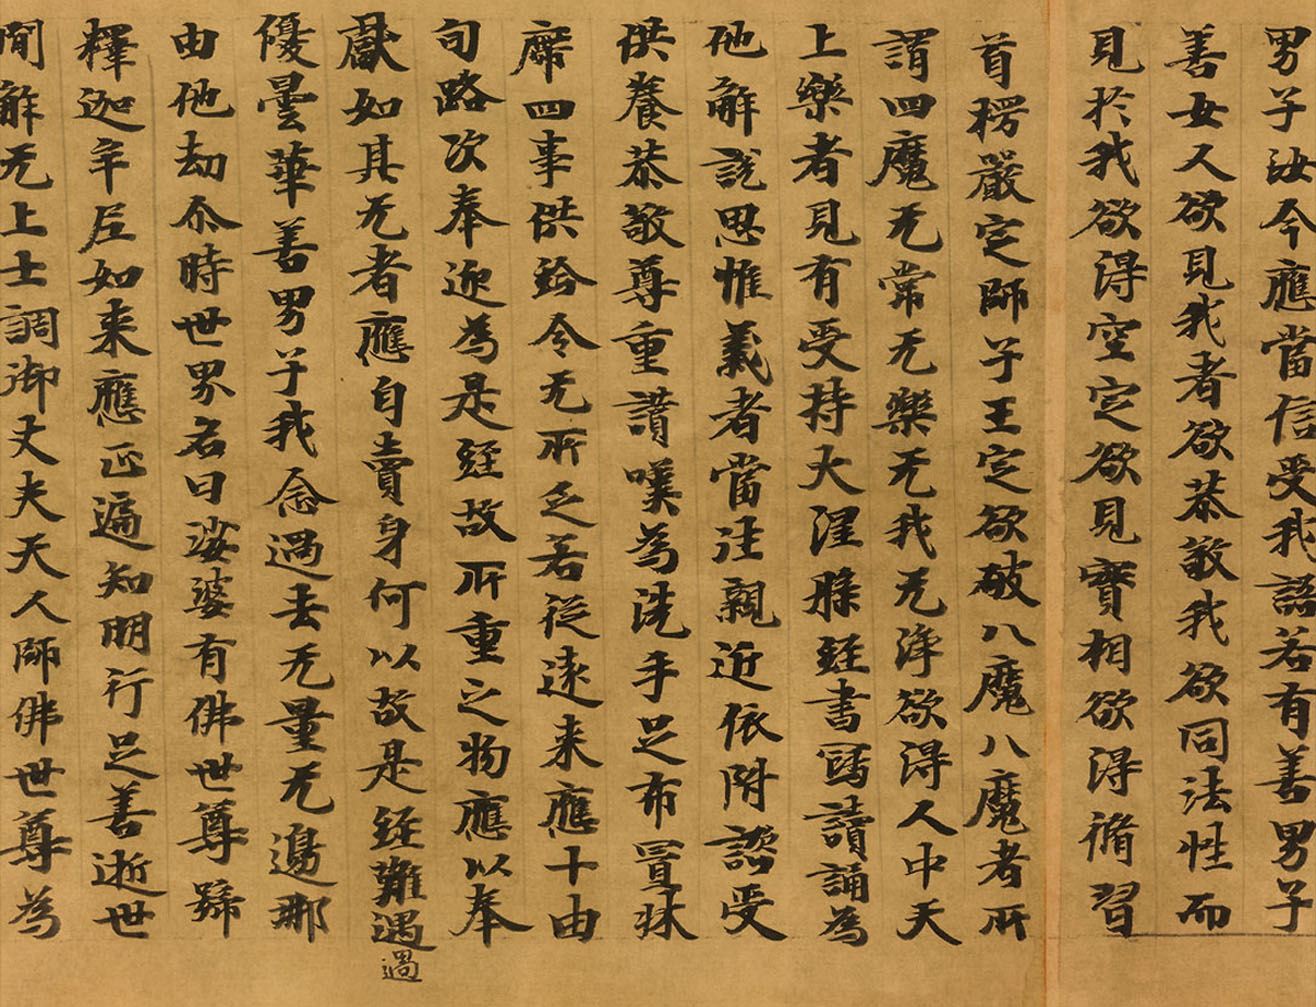 男子汝今應當信受我語若有善男子
善女人欲見我者欲恭敬我欲同法性而
見於我欲得空定欲見實相欲得脩習
首楞嚴定師子王定欲破八魔八魔者所
謂四魔无常无樂无我无淨欲得人中天
上樂者見有受持大涅槃經書寫讀誦為
他解說思惟義者當往親近依附諮受
供養恭敬尊重讚嘆為洗手足布置牀
席四事供給令无所乏若從遠來應十由
旬路次奉迎為是經故所重之物應以奉
獻如其无者應自賣身何以故是經難遇過
優曇華善男子我念過去无量无邊那
由他劫尒時世界名曰娑婆有佛世尊號
釋迦牟尼如來應正遍知明行足善逝世
間解无上士調御丈夫天人師佛世尊為